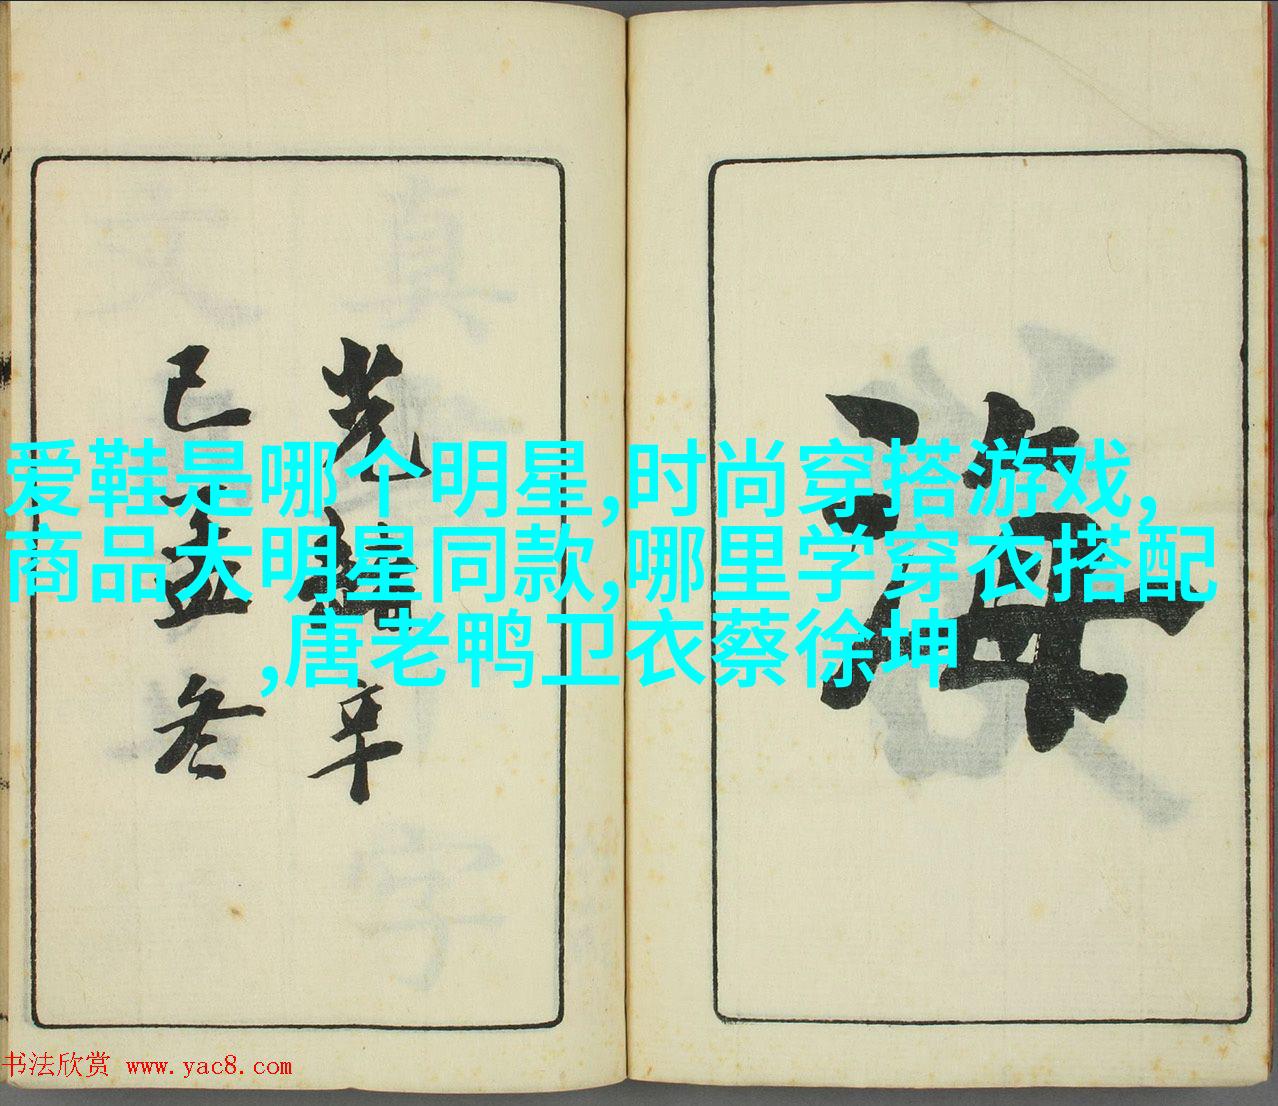 爱鞋是哪个明星,时尚穿搭游戏,
商品大明星同款,哪里学穿衣搭配
,唐老鸭卫衣蔡徐坤
海
光緒辛
巳孟冬
书法欣赏 www.yac8.com